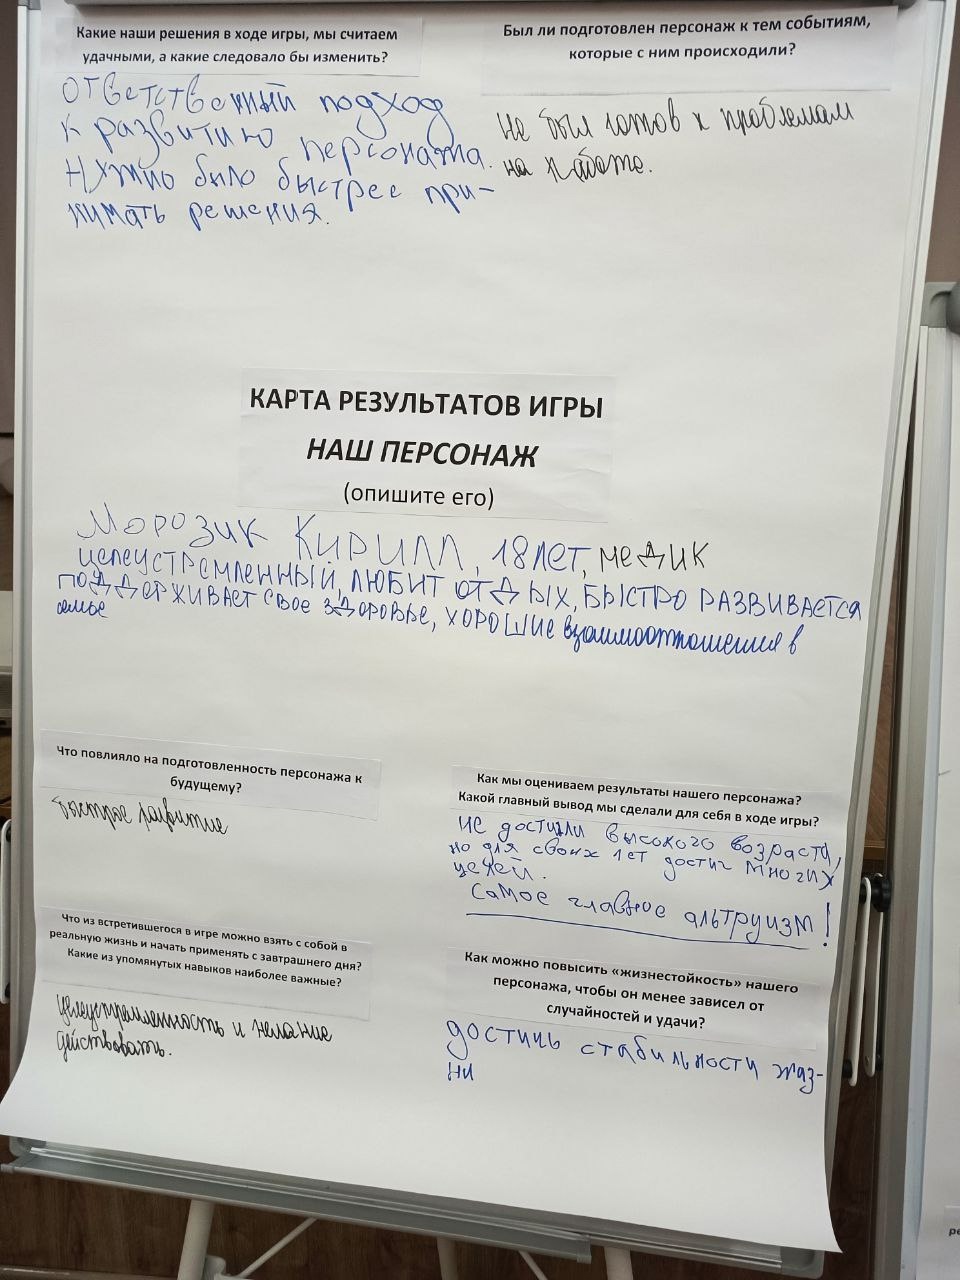 Какие наши решения в ходе игры, мы считаем
удачными, а какие следовало бы изменить?
ответственный подход
к развитию персонажа.
Нужно было быстрее при-
нимать решения.
Был ли подготовлен персонаж к тем событиям,
которые с ним происходили?
Не был готов к проблемам
на работе.
КАРТА РЕЗУЛЬТАТОВ ИГРЫ
НАШ ПЕРСОНАЖ
(опишите его)
Морозик Кирилл, 18 лет, медик
целеустремленный, любит отдых, быстро развивается
поддерживает свое здоровье, хорошие взаимоотношения в
семье
Что повлияло на подготовленность персонажа к
будущему?
быстрое развитие
Как мы оцениваем результаты нашего персонажа?
Какой главный вывод мы сделали для себя в ходе игры?
не достигли высокого возраста,
но для своих лет достиг многих
целей.
Самое главное альтруизм!
Что из встретившегося в игре можно взять с собой в
реальную жизнь и начать применять с завтрашнего дня?
Какие из упомянутых навыков наиболее важные?
Целеустремленность и желание
действовать.
Как можно повысить «жизнестойкость» нашего
персонажа, чтобы он менее зависел от
случайностей и удачи?
достичь стабильности жиз-
ни